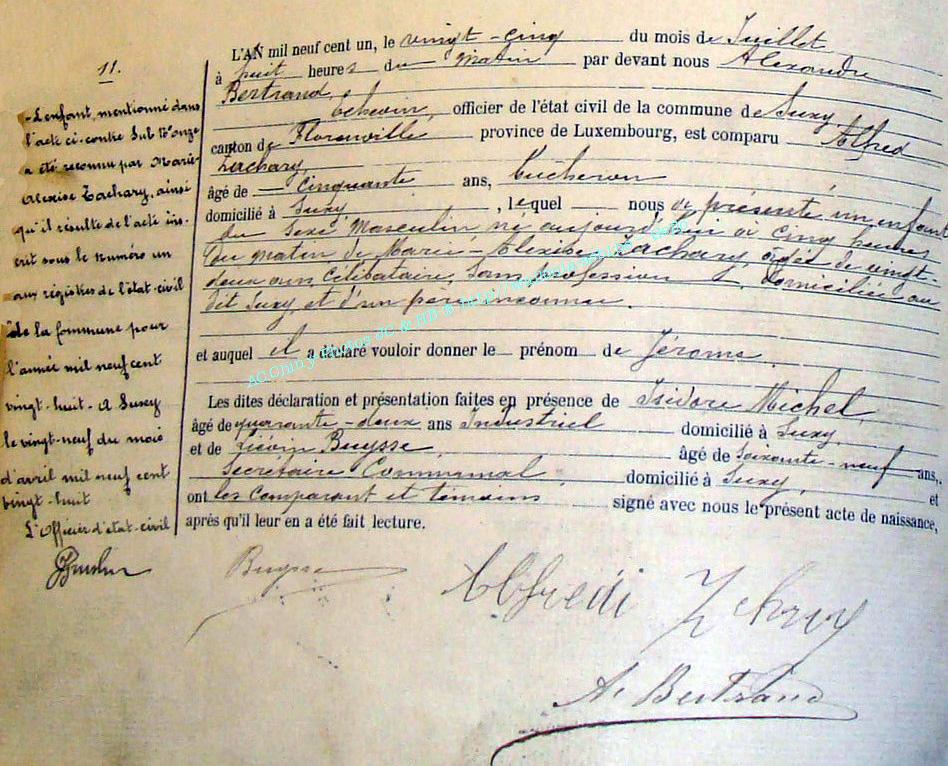 11.
- L'enfant, mentionné dans
l'acte ci-contre Sub N° onze
a été reconnu par Marie-
Alexise Zachary, ainsi
qu'il résulte de l'acte ins-
crit sous le numéro un
aux régistres de l'état-civil
de la commune pour
l'année mil neuf cent
vingt-huit - A Suxy
le vingt-neuf du mois
d'avril mil neuf cent
vingt-huit
L'Officier d'état-civil
L'AN mil neuf cent un, le vingt-cinq du mois de Juillet
à huit heures du matin par devant nous Alexandre
Bertrand,
échevin, officier de l'état civil de la commune de Suxy
canton de Florenville province de Luxembourg, est comparu Alfred
Zachary,
âgé de cinquante ans, bûcheron
domicilié à Suxy, lequel nous a présenté un enfant
du sexe masculin, né aujourd'hui à cinq heures
du matin de Marie-Alexise Zachary, âgée de vingt-
deux ans, célibataire, sans profession, domiciliée au
dit Suxy, et d'un père inconnu.
et auquel il a déclaré vouloir donner le prénom de Jérome.
Les dites déclaration et présentation faites en présence de Isidore Michel,
âgé de quarante-deux ans Industriel domicilié à Suxy
et de Buysse âgé de soixante-neuf ans,
Secrétaire Communal domicilié à Suxy, et
ont les comparant et témoins signé avec nous le présent acte de naissance,
après qu'il leur en a été fait lecture.
Buysse
A. Bertrand